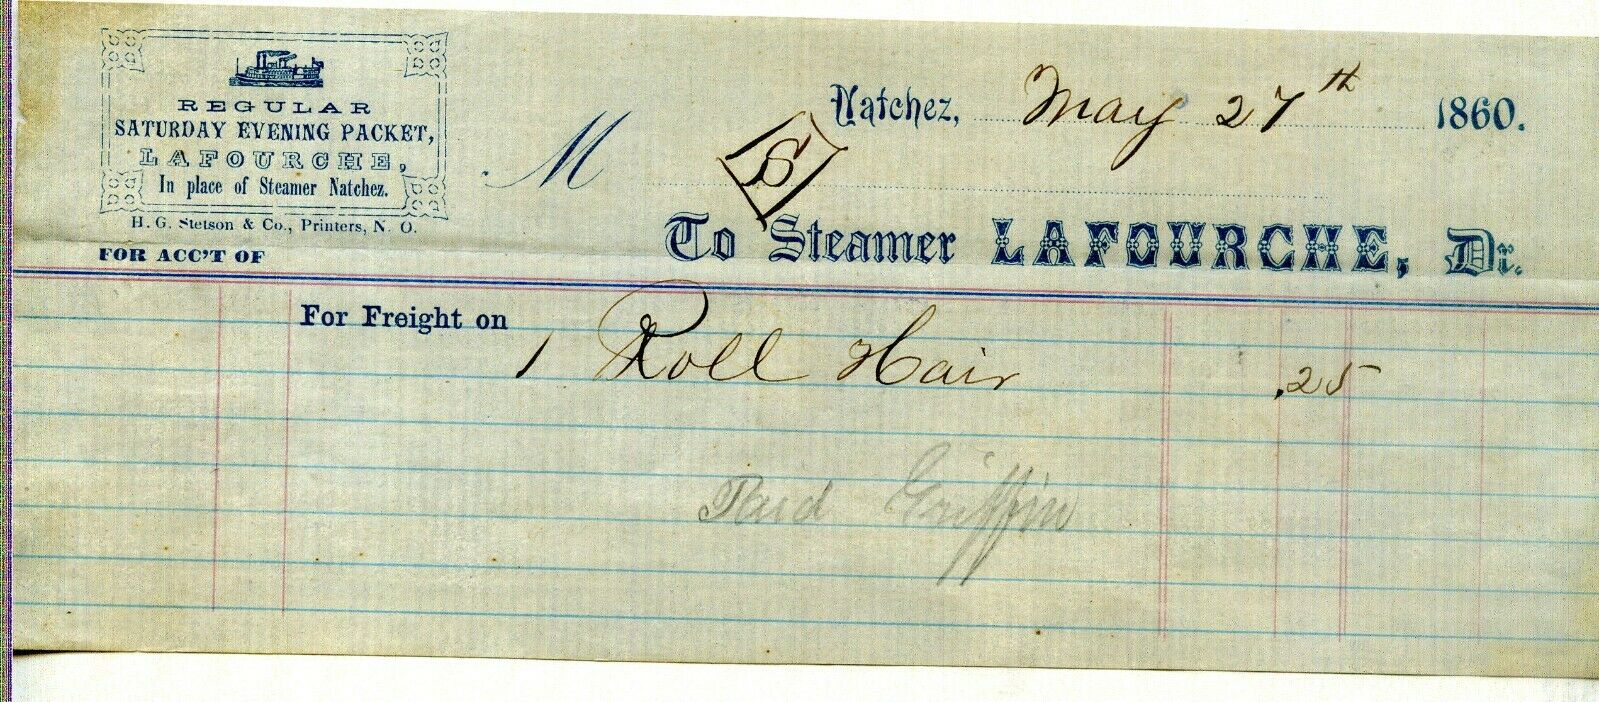 REGULAR
SATURDAY EVENING PACKET,
LAFOURCHE,
In place of Steamer Natchez.
H. G. Stetson & Co., Printers, N. O.
Natchez, May 27th 1860.
M S
To Steamer LAFOURCHE, Dr.
FOR ACC'T OF
For Freight on
1 Roll Hair .25
Paid Griffin